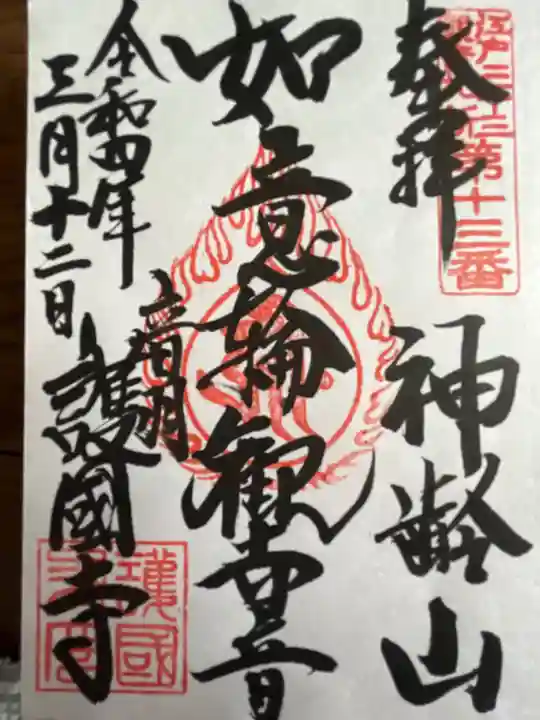 第十三番
奉拝
神齢山
如意輪観音
音羽
護國寺
令和四年
三月十二日
護國